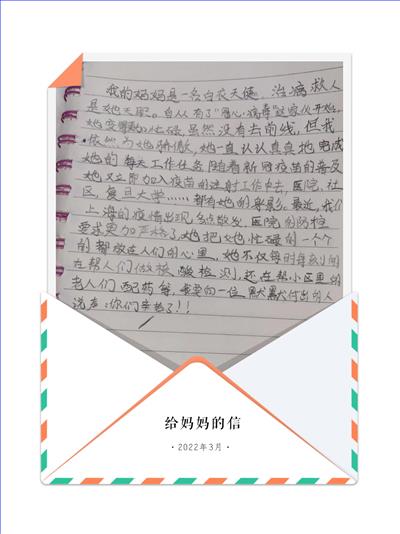 我的妈妈是一名白衣天使,治病救人
是她天职。自从有了"冠心病毒"这家伙开始,
她变得的忙碌,虽然没有去前线,但我
依然为她骄傲,她一直认认真真地完成
她的每天工作任务随着新冠疫苗的普及
她又立即加入疫苗的注射工作中去,医院,社
区,复旦大学……都有她的身影。最近,我们
上海的疫情出现多点散发,医院的防控
要求更加严格了,她把她忙碌的一个个
的都放在人们的心里,她不仅每时每刻
在帮人们做核酸检测,还在帮小区里的
老人们配药等,我要的一位默默付出的人
说声:你们辛苦了!!
给妈妈的信
·2022年3月·